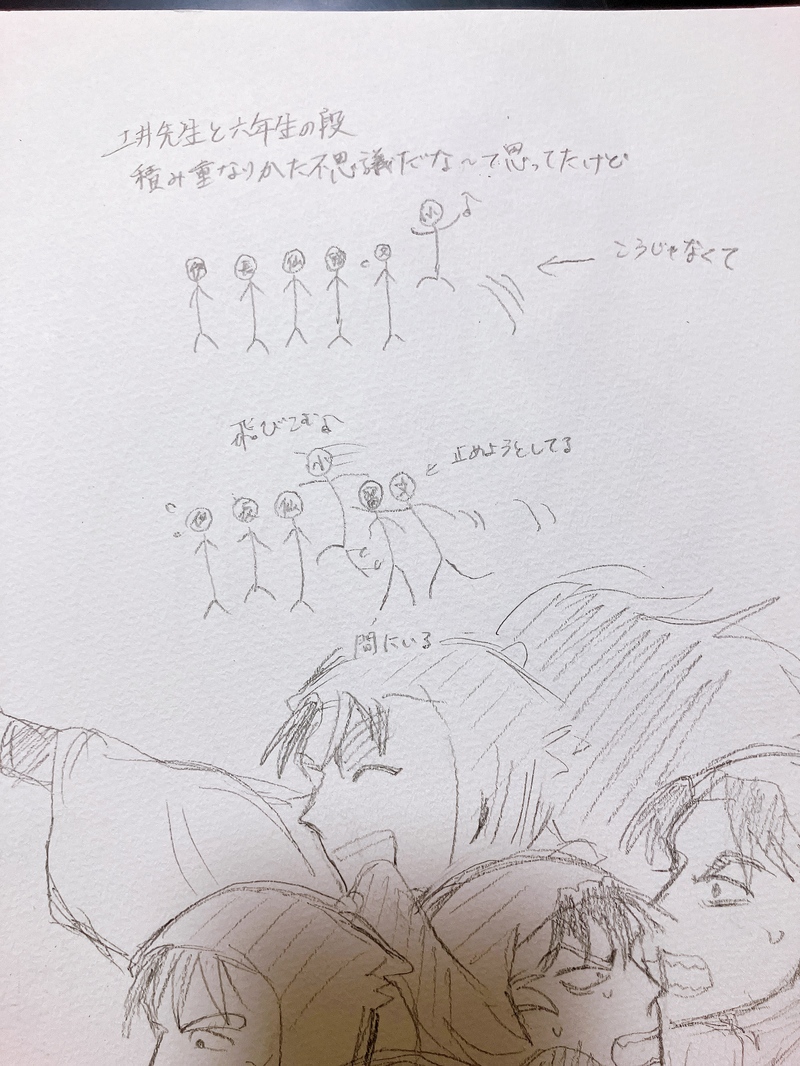 土井先生と六年生の段
積み重なりかた不思議だな〜て思ってたけど
小
伊 長 仙 留 文
こうじゃなくて
飛びこむ
止めようとしてる
小
伊 長 仙 留 文
間にいる